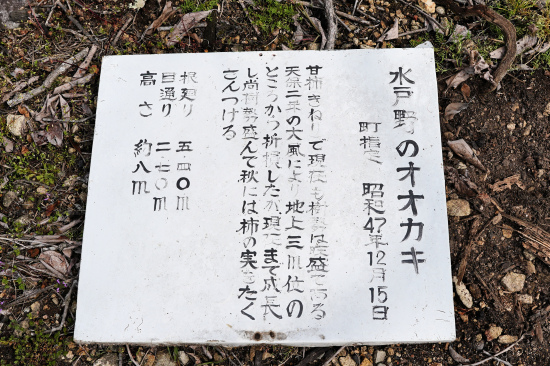 水戸野のオオカキ
町指定 昭和47年12月15日
甘柿きねりで現在も樹勢は旺盛である
天保三年の大風により地上三m位の
ところから折損したが現在まで成長
し尚樹勢盛んで秋には柿の実をたく
さんつける
根廻り 五・四〇m
目通り 二・七〇m
高さ 約八m